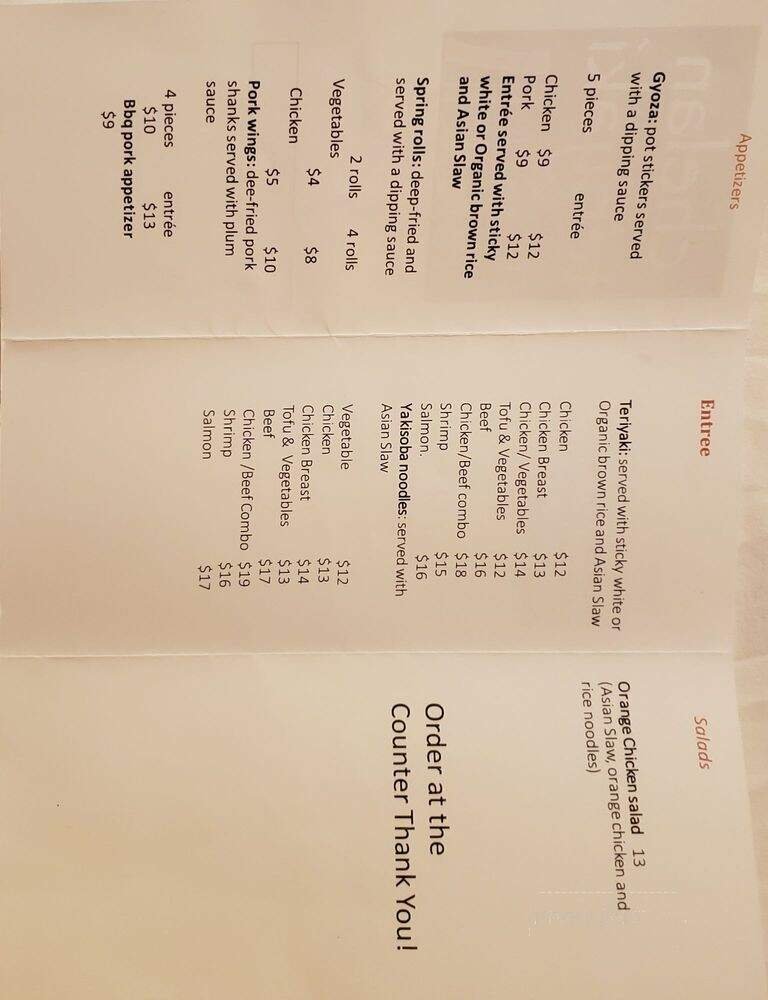 Appetizers
Gyoza: pot stickers served
with a dipping sauce
5 pieces entrée
Chicken $9 $12
Pork $9 $12
Entrée served with sticky
white or Organic brown rice
and Asian Slaw
Spring rolls: deep-fried and
served with a dipping sauce
2 rolls 4 rolls
Vegetables
$4 $8
Chicken
$5 $10
Pork wings: dee-fried pork
shanks served with plum
sauce
4 pieces entrée
$10 $13
Bbq pork appetizer
$9
Entree
Teriyaki: served with sticky white or
Organic brown rice and Asian Slaw
Chicken $12
Chicken Breast $13
Chicken/ Vegetables $14
Tofu & Vegetables $12
Beef $16
Chicken/Beef combo $18
Shrimp $15
Salmon. $16
Yakisoba noodles: served with
Asian Slaw
Vegetable $12
Chicken $13
Chicken Breast $14
Tofu & Vegetables $13
Beef $17
Chicken /Beef Combo $19
Shrimp $16
Salmon $17
Salads
Orange Chicken salad 13
(Asian Slaw, orange chicken and
rice noodles)
Order at the
Counter Thank You!